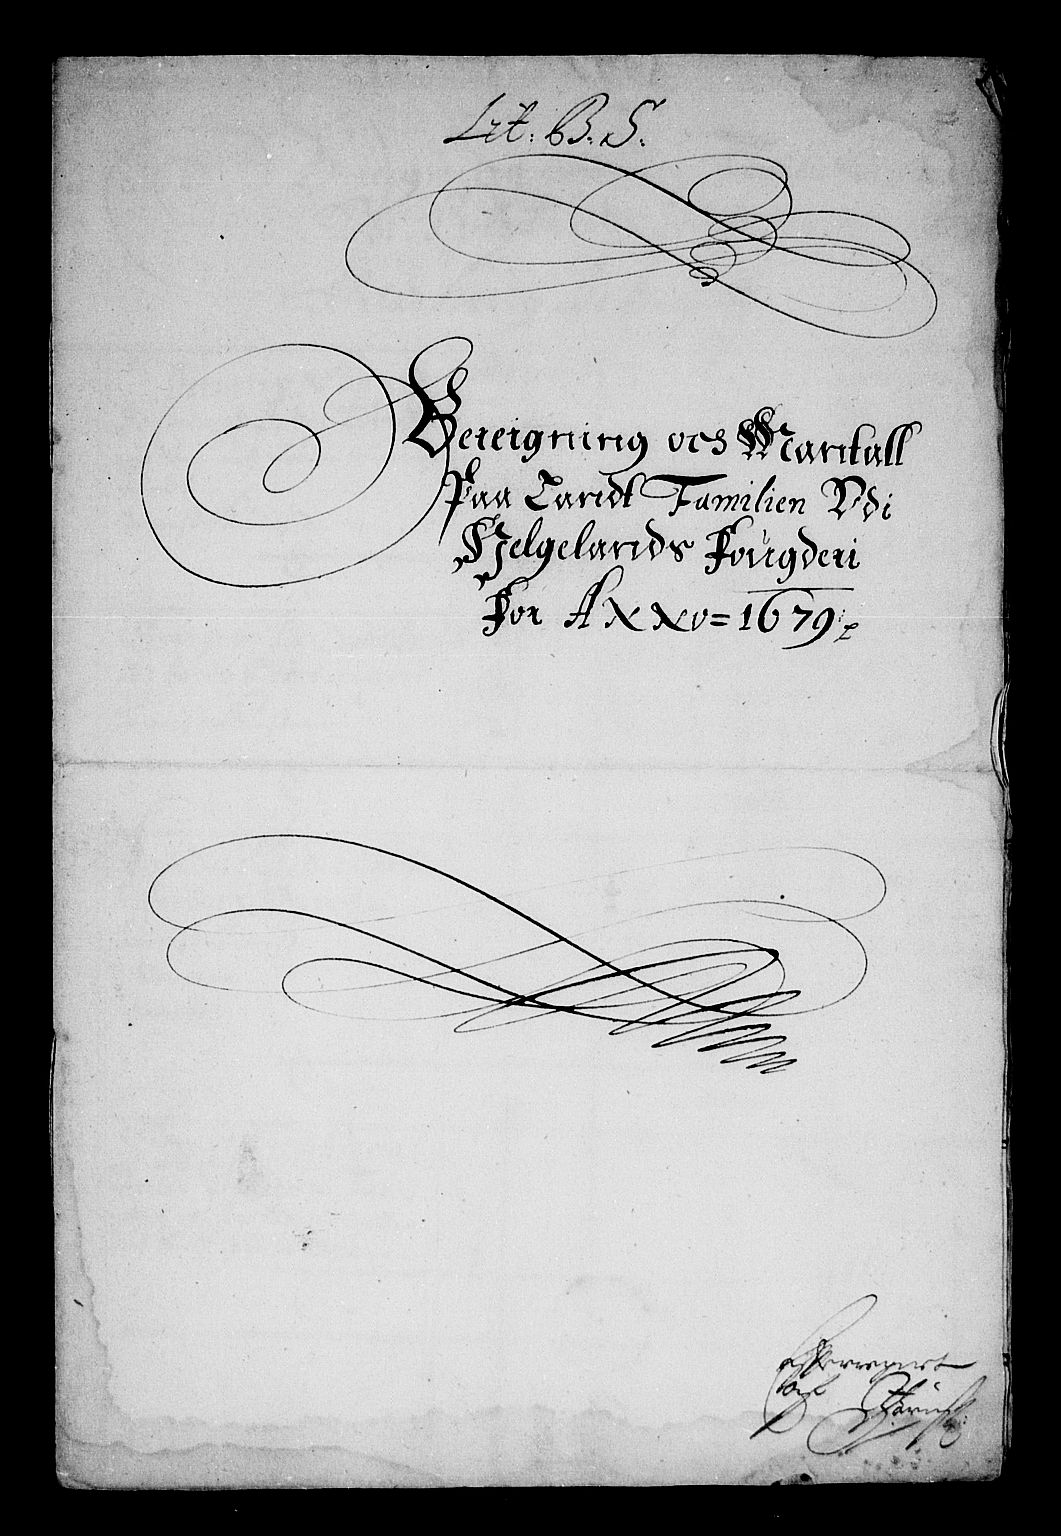 Lit: B: S:
Bereigning och Mantall
Paa Landt Familien Vdi
Helgelands Fougderi
For Anno = 1679